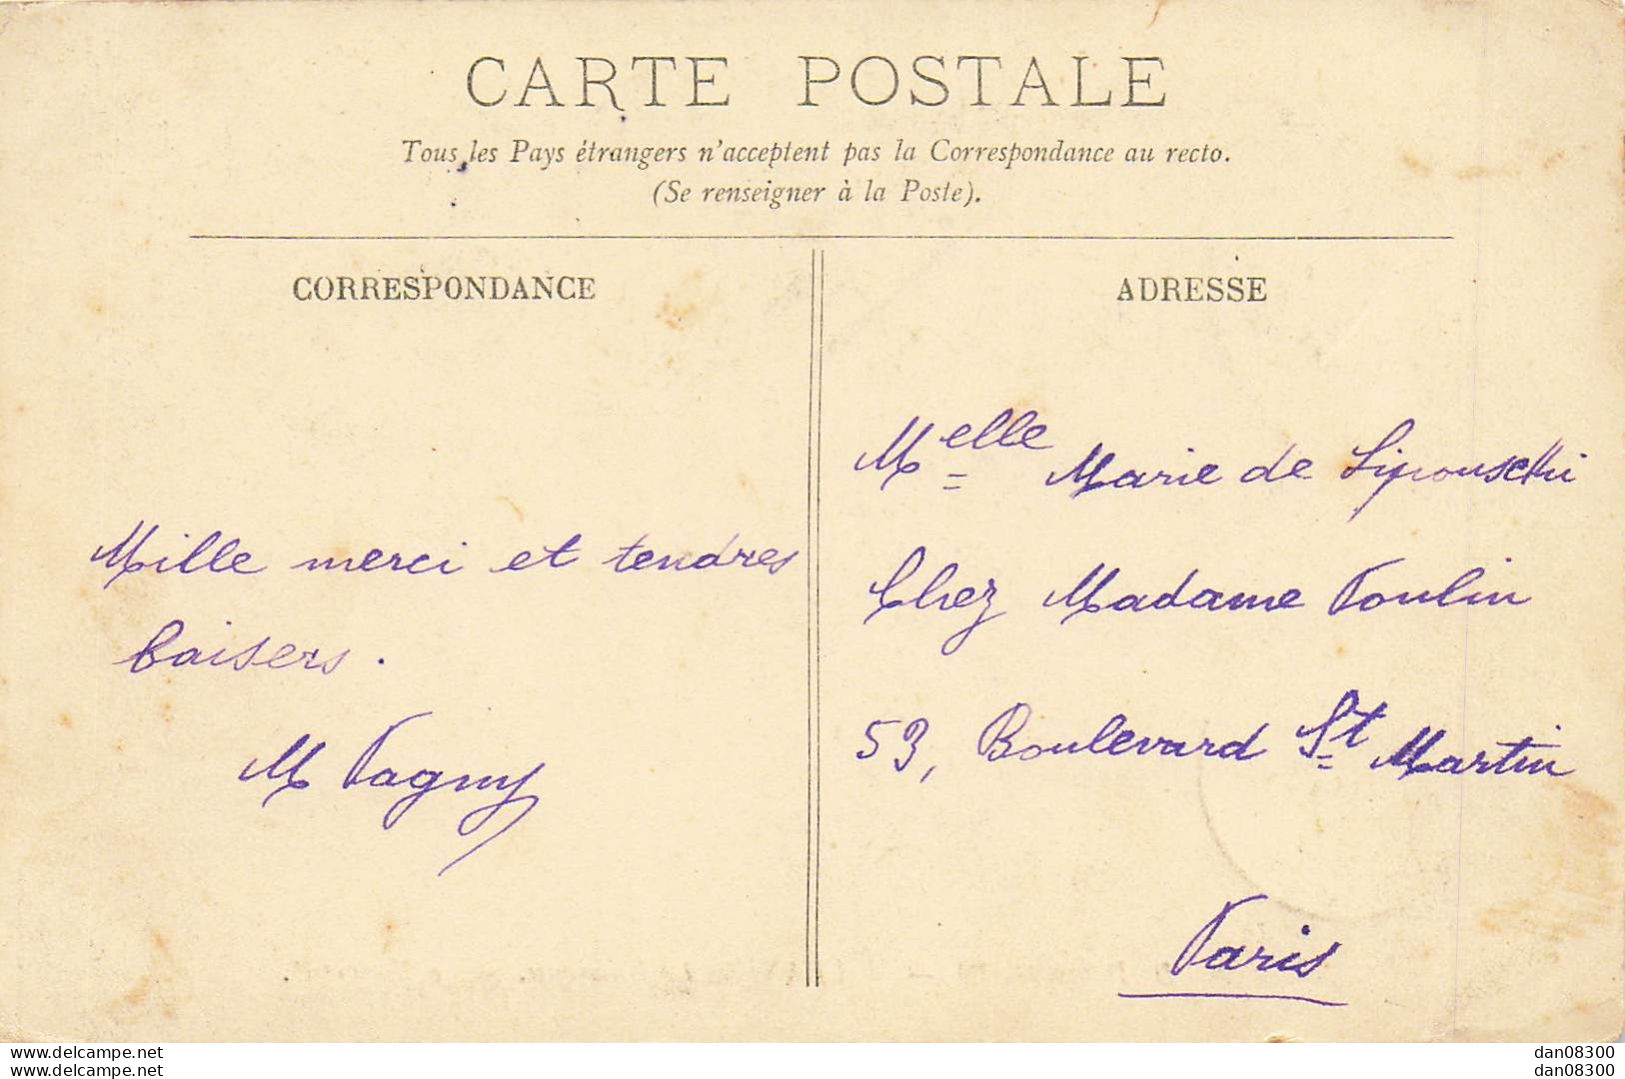 CARTE POSTALE
Tous les Pays étrangers n'acceptent pas la Correspondance au recto.
(Se renseigner à la Poste).
CORRESPONDANCE
ADRESSE
Mille merci et tendres
baisers.
M Pagny
Melle Marie de
Chez Madame Poulin
53, Boulevard St Martin
Paris
www.delcampe.net
www.delcampe.net
dan08300
dan08300